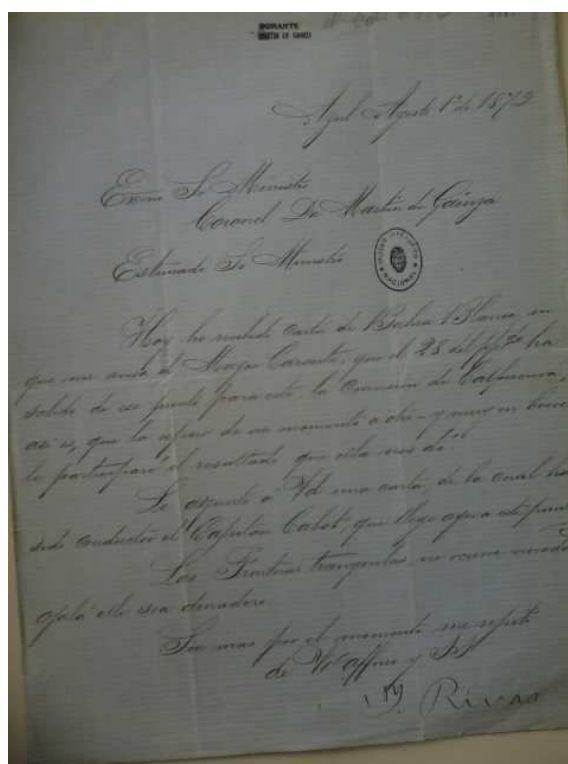 DONANTE
MARTIN DE GAINZA
Azul Agosto 1º de 1872
Exmo Sr Ministro
Coronel Dn Martin de Gainza
Estimado Sr Ministro
MUSEO HISTORICO NACIONAL
Hoy he recibido carta de Bahia Blanca, en
que me avisa el Mayor que el 28 del ha
salido de ese punto para este, la Comision de Calfucura,
asi es, que la espero de un momento a otro y muy en breve
le participaré el resultado que ella nos dé.
Le adjunto a Vd una carta, de la cual ha
sido conductor el Capitan que llegó ayer a este punto
Las Fronteras tranquilas, no ocurre novedad
ojalá esto sea duradero.
Sin mas por el momento me repito
de Vd affmo y
Y. Rivas